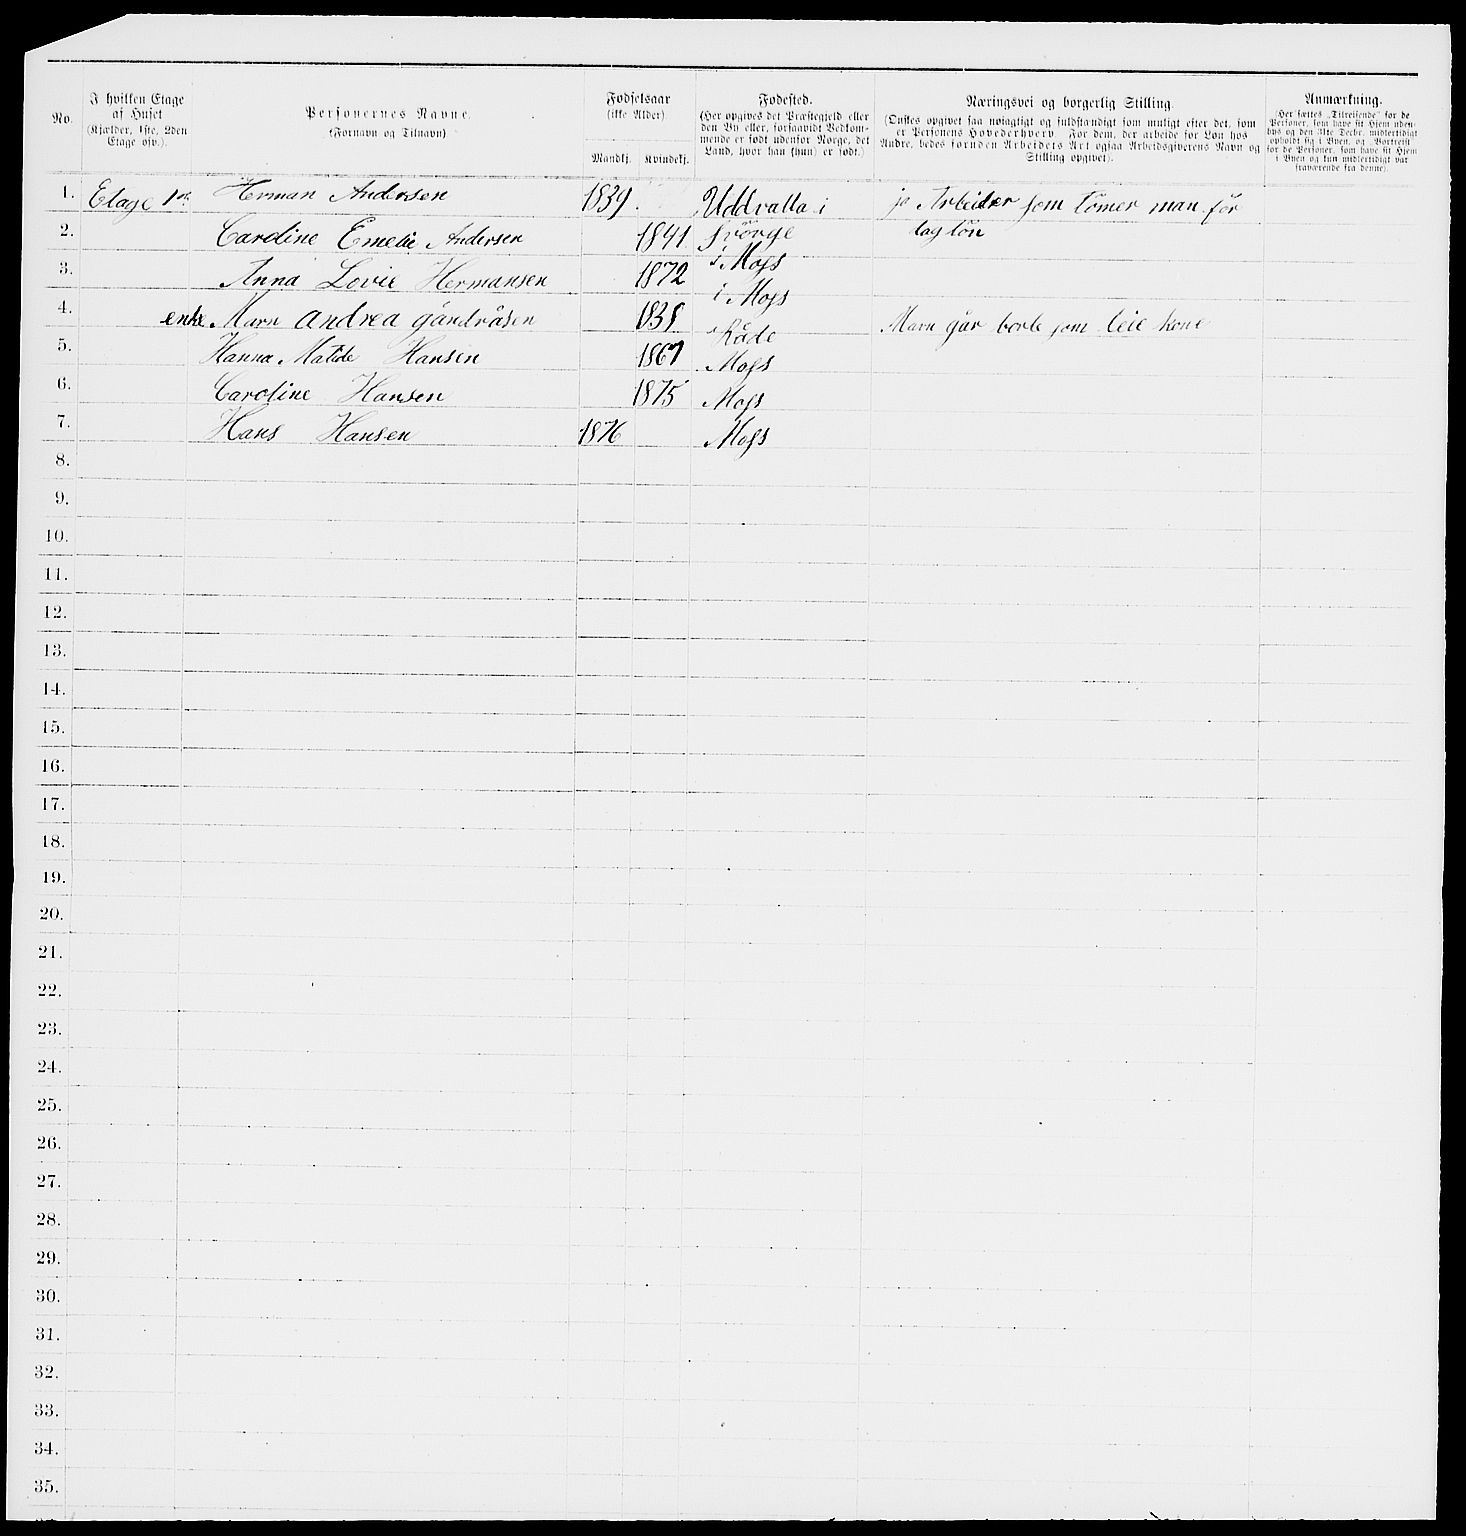 No.
I hvilken Etage
af Huset
(Kjælder, 1ste, 2den
Etage osv.).
Personernes Navne.
(Fornavn og Tilnavn)
Fødselsaar
(ikke Alder)
Mandkj. Kvindekj.
Fødested.
(Her opgives det Præstegjeld eller
den By eller, forsaavidt Vedkom-
mende er født udenfor Norge, det
Land, hvor han (hun) er født.)
Næringsvei og borgerlig Stilling.
(Ønskes opgivet saa nøiagtigt og fuldstændigt som muligt efter det, som
er Personens Hovederhverv. For dem, der arbeide for Løn hos
Andre, bedes foruden Arbeidets Art ogsaa Arbeidsgiverens Navn og
Stilling opgivet).
Anmærkning.
(Her sættes „Tilreisende“ for de
Personer, som have sit Hjem uden-
bys og den 31te Decbr. midlertidigt
opholdt sig i Byen, og „Bortreist“
for de Personer, som have sit Hjem
i Byen og kun midlertidigt var
fraværende fra denne).
1. Etage 1 Herman Andersen 1839 Uddvalla i Arbeider som tömer man för
2. Caroline Emelie Andersen 1841 Svörge dag lön
3. Anna Lovie Hermansen 1872 i Moss
i Moss
4. enke Marn andrea gändråsen 1838 Råde Marn går borte som leie kone
5. Hanna Matide Hansen 1867 Moss
6. Caroline Hansen 1875 Moss
7. Hans Hansen 1876 Moss
8.
9.
10.
11.
12.
13.
14.
15.
16.
17.
18.
19.
20.
21.
22.
23.
24.
25.
26.
27.
28.
29.
30.
31.
32.
33.
34.
35.